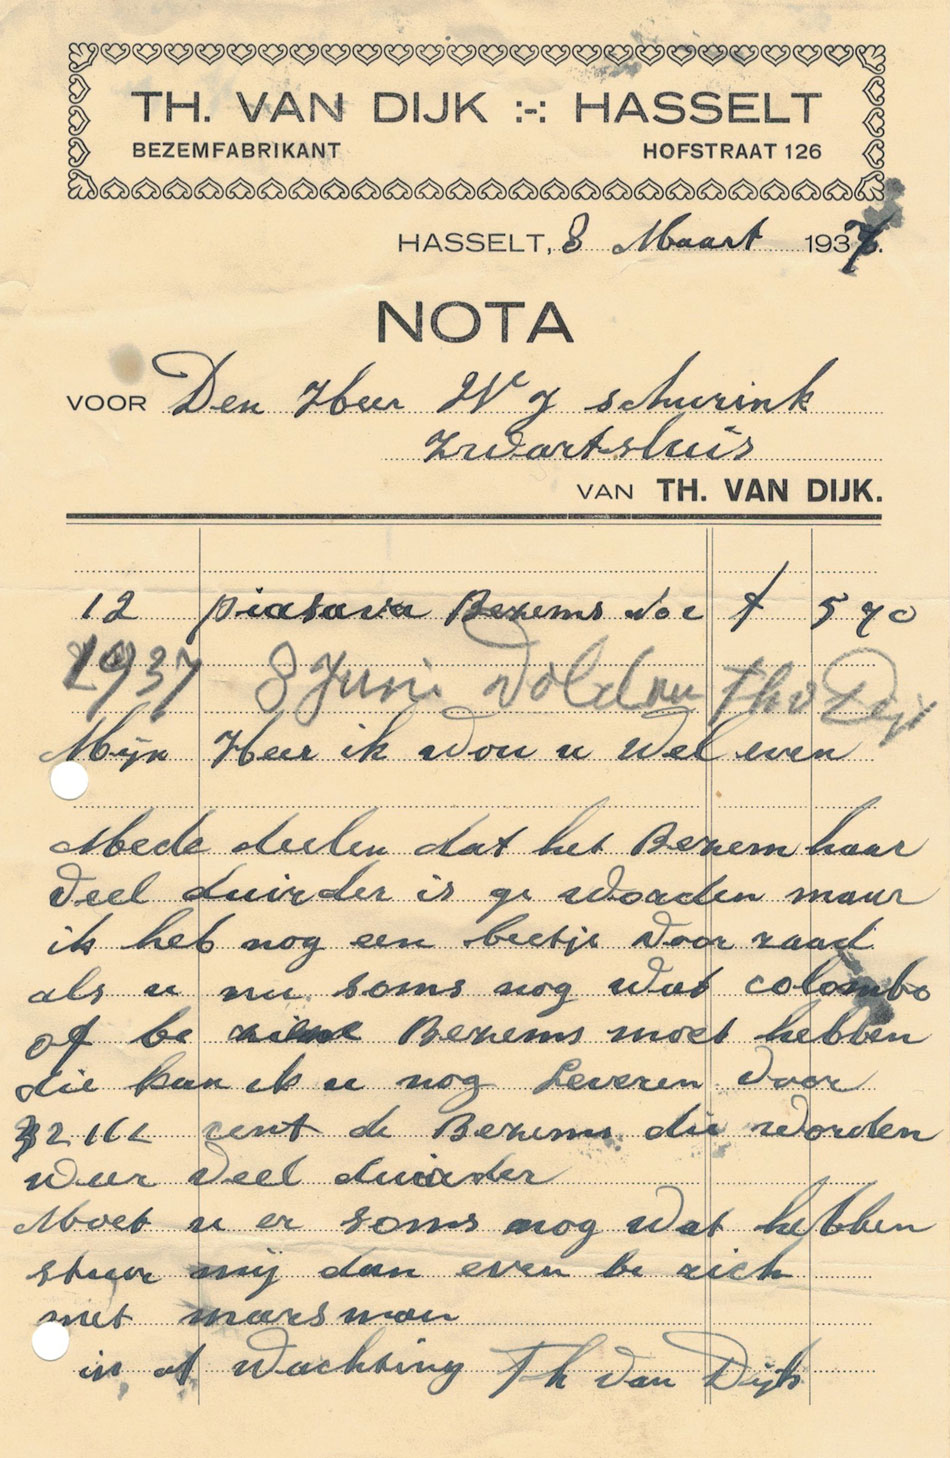 TH. VAN DIJK :-: HASSELT
BEZEMFABRIKANT HOFSTRAAT 126
HASSELT, 8 Maart 1937.
NOTA
VOOR Den Heer W J Schurink
Zwartsluis
VAN TH. VAN DIJK.
12 piasava Bezems voor f 5 70
1937 8 Juni Voldaan Th v Dijk
Mijn Heer ik wou u wel even
Mede deelen dat het Bezem haar
veel duirder is ge worden maar
ik heb nog een beetje voor raad
als u nu soms nog wat colombo
of Bezems moet hebben
die kan ik u nog Leveren voor
cent de Bezems die worden
weer veel duirder
Moet u er soms nog wat hebben
stuur mij dan even be rich
met marsman
in af wachting Th van Dijk